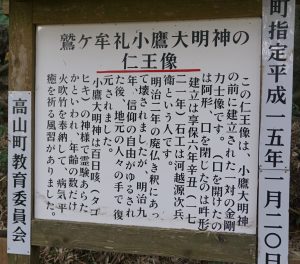 鷲ケ牟礼小鷹大明神の
仁王像
この仁王像は、小鷹大明神
の前に建立された一対の金剛
力士像です。(口を開けたの
は阿形、口を閉じたのは吽形)
建立は享保六年辛丑(一七
二一年)、石工は河越源次兵
衛という人です。
明治二年の廃仏き釈にあっ
て壊されましたが、明治九
年、信仰の自由がゆるされ
た後、地元の人々の手で復
元されました。
小鷹大明神は百日咳(タゴ
ヒキ)の神様で霊験あらた
かといわれ、年齢の数だけ
火吹竹を奉納して、病気平
癒を祈る風習がありました。
町指定平成一五年一月二〇日
高山町教育委員会